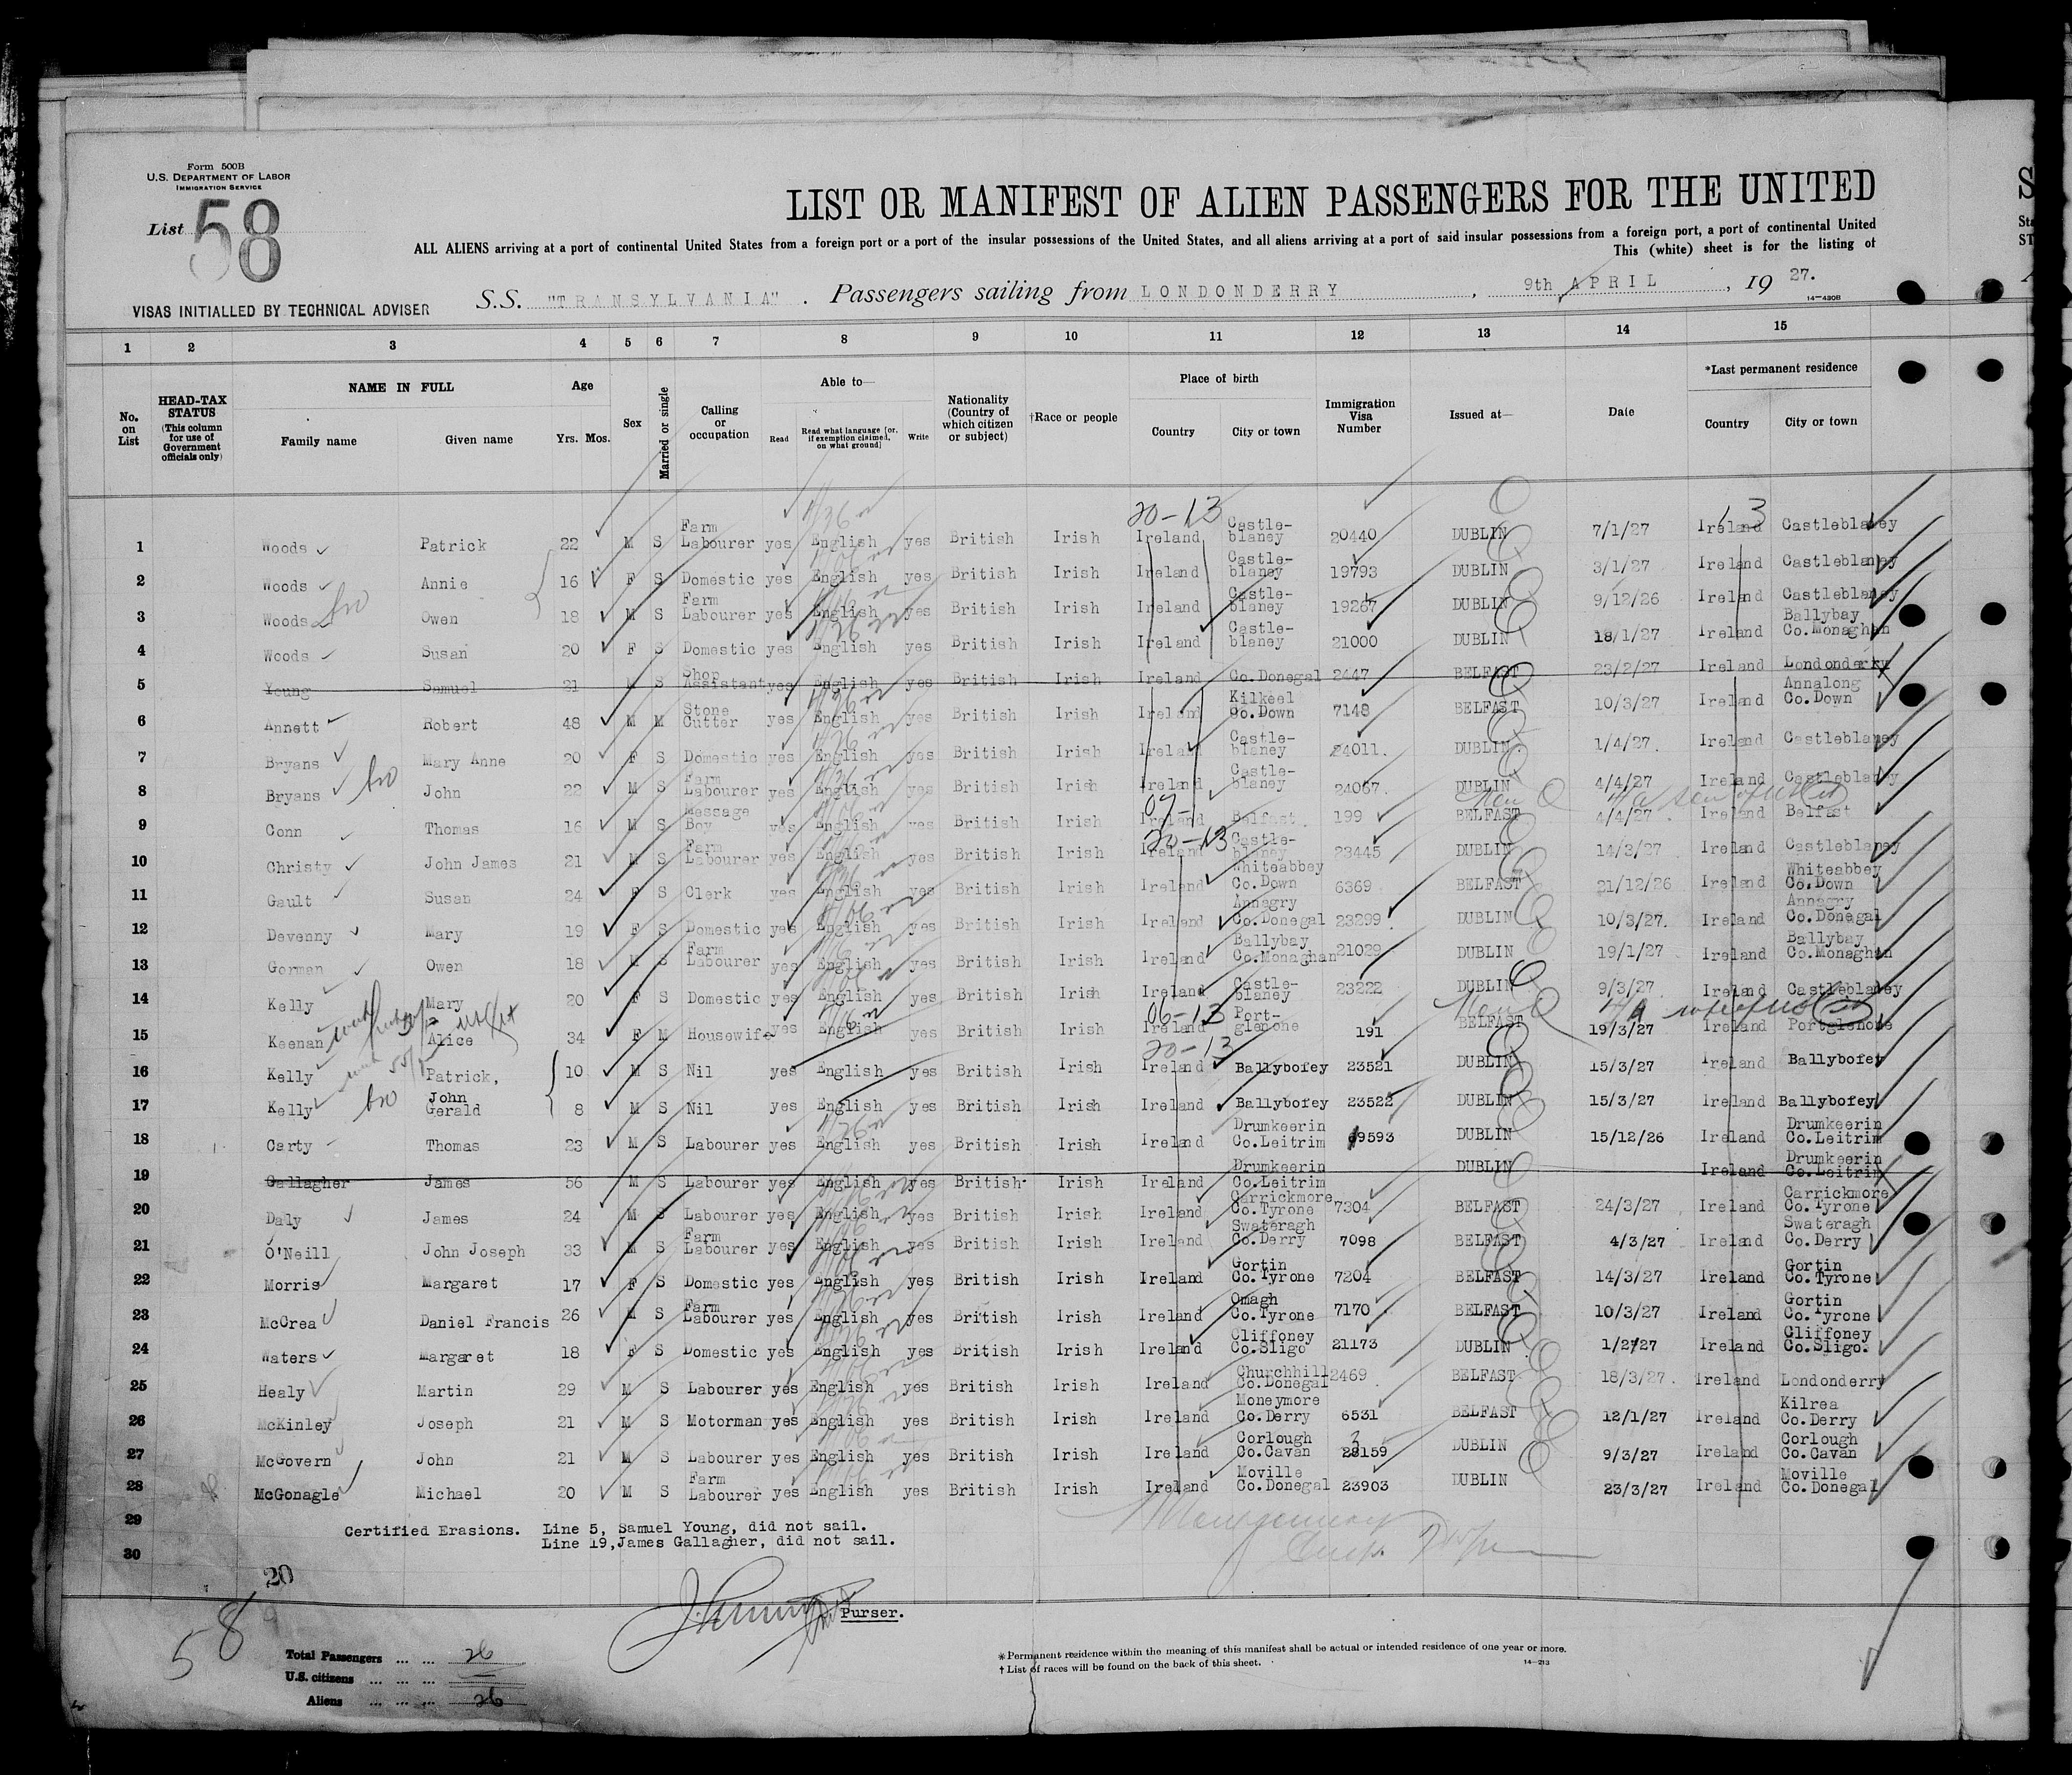 Form 500B
U.S. DEPARTMENT OF LABOR
IMMIGRATION SERVICE
List 58
LIST OR MANIFEST OF ALIEN PASSENGERS FOR THE UNITED
ALL ALIENS arriving at a port of continental United States from a foreign port or a port of the insular possessions of the United States, and all aliens arriving at a port of said insular possessions from a foreign port, a port of continental United
This (white) sheet is for the listing of
VISAS INITIALLED BY TECHNICAL ADVISER
S.S. "TRANSYLVANIA" . Passengers sailing from LONDONDERRY , 9th APRIL , 19 27.
14—430B
1 2 3 4 5 6 7 8 9 10 11 12 13 14 15
No. on List
HEAD-TAX STATUS (This column for use of Government officials only)
NAME IN FULL
Family name Given name
Age
Yrs. Mos.
Sex
Married or single
Calling or occupation
Able to—
Read
Read what language [or, if exemption claimed, on what ground]
Write
Nationality (Country of which citizen or subject)
†Race or people
Place of birth
Country City or town
Immigration Visa Number
Issued at—
Date
*Last permanent residence
Country City or town
20-13
1 Woods Patrick 22 M S Farm Labourer yes English yes British Irish Ireland Castle-blaney 20440 DUBLIN 7/1/27 Ireland Castleblaney
2 Woods Annie 16 F S Domestic yes English yes British Irish Ireland Castle-blaney 19793 DUBLIN 3/1/27 Ireland Castleblaney
3 Woods Owen 18 M S Farm Labourer yes English yes British Irish Ireland Castle-blaney 19267 DUBLIN 9/12/26 Ireland Castleblaney
4 Woods Susan 20 F S Domestic yes English yes British Irish Ireland Castle-blaney 21000 DUBLIN 18/1/27 Ireland Ballybay Co.Monaghan
5 Young Samuel 21 M S Shop Assistant yes English yes British Irish Ireland Co.Donegal 2447 BELFAST 23/2/27 Ireland Londonderry
6 Annett Robert 48 M M Stone Cutter yes English yes British Irish Ireland Kilkeel Co.Down 7148 BELFAST 10/3/27 Ireland Annalong Co.Down
7 Bryans Mary Anne 20 F S Domestic yes English yes British Irish Ireland Castle-blaney 24011. DUBLIN. 1/4/27. Ireland Castleblaney
8 Bryans John 22 M S Farm Labourer yes English yes British Irish Ireland Castle-blaney 24067. DUBLIN 4/4/27 Ireland Castleblaney
9 Conn Thomas 16 M S Message Boy yes English yes British Irish Ireland Belfast. 199 BELFAST 4/4/27. Ireland Belfast
20-13
10 Christy John James 21 M S Farm Labourer yes English yes British Irish Ireland Castle-blaney 23445 DUBLIN 14/3/27 Ireland Castleblaney
11 Gault Susan 24 F S Clerk yes English yes British Irish Ireland Whiteabbey Co.Down 6369 BELFAST 21/12/26 Ireland Whiteabbey Co.Down
12 Devenny Mary 19 F S Domestic yes English yes British Irish Ireland Annagry Co.Donegal 23299 DUBLIN 10/3/27. Ireland Annagry Co.Donegal
13 Gorman Owen 18 M S Farm Labourer yes English yes British Irish Ireland Ballybay Co.Monaghan 21029 DUBLIN 19/1/27 Ireland Ballybay Co.Monaghan
14 Kelly Mary 20 F S Domestic yes English yes British Irish Ireland Castle-blaney 23222 DUBLIN 9/3/27 Ireland Castleblaney
06-13
15 Keenan Alice 34 F M Housewife yes English yes British Irish Ireland Port-glenone 191 BELFAST 19/3/27 Ireland Portglenone
20-13
16 Kelly Patrick, 10 M S Nil yes English yes British Irish Ireland Ballybofey 23521 DUBLIN 15/3/27 Ireland Ballybofey
17 Kelly John Gerald 8 M S Nil yes English yes British Irish Ireland Ballybofey 23522 DUBLIN 15/3/27 Ireland Ballybofey
18 Carty Thomas 23 M S Labourer yes English yes British Irish Ireland Drumkeerin Co.Leitrim 9593 DUBLIN 15/12/26 Ireland Drumkeerin Co.Leitrim
19 Gallagher James 56 M S Labourer yes English yes British Irish Ireland Drumkeerin Co.Leitrim DUBLIN Ireland Drumkeerin Co.Leitrim
20 Daly James 24 M S Labourer yes English yes British Irish Ireland Carrickmore Co.Tyrone 7304 BELFAST 24/3/27 Ireland Carrickmore Co.Tyrone
21 O'Neill John Joseph 33 M S Farm Labourer yes English yes British Irish Ireland Swateragh Co.Derry 7098 BELFAST 4/3/27 Ireland Swateragh Co.Derry
22 Morris Margaret 17 F S Domestic yes English yes British Irish Ireland Gortin Co.Tyrone 7204 BELFAST 14/3/27 Ireland Gortin Co.Tyrone
23 McCrea Daniel Francis 26 M S Farm Labourer yes English yes British Irish Ireland Omagh Co.Tyrone 7170 BELFAST 10/3/27 Ireland Gortin Co.Tyrone
24 Waters Margaret 18 F S Domestic yes English yes British Irish Ireland Cliffoney Co.Sligo 21173 DUBLIN 1/2/27 Ireland Cliffoney Co.Sligo.
25 Healy Martin 29 M S Labourer yes English yes British Irish Ireland Churchhill Co.Donegal 2469 BELFAST 18/3/27. Ireland Londonderry
26 McKinley Joseph 21 M S Motorman yes English yes British Irish Ireland Moneymore Co.Derry 6531 BELFAST 12/1/27 Ireland Kilrea Co.Derry
27 McGovern John 21 M S Labourer yes English yes British Irish Ireland Corlough Co.Cavan 23159 DUBLIN 9/3/27 Ireland Corlough Co.Cavan
28 McGonagle Michael 20 M S Farm Labourer yes English yes British Irish Ireland Moville Co.Donegal 23903 DUBLIN 23/3/27 Ireland Moville Co.Donegal
29 Certified Erasions. Line 5, Samuel Young, did not sail.
Line 19,James Gallagher, did not sail.
30
20
58
Purser.
Total Passengers ... ... 26
U.S. citizens ... ... ... —
Aliens ... ... ... 26
* Permanent residence within the meaning of this manifest shall be actual or intended residence of one year or more.
† List of races will be found on the back of this sheet.
14—213